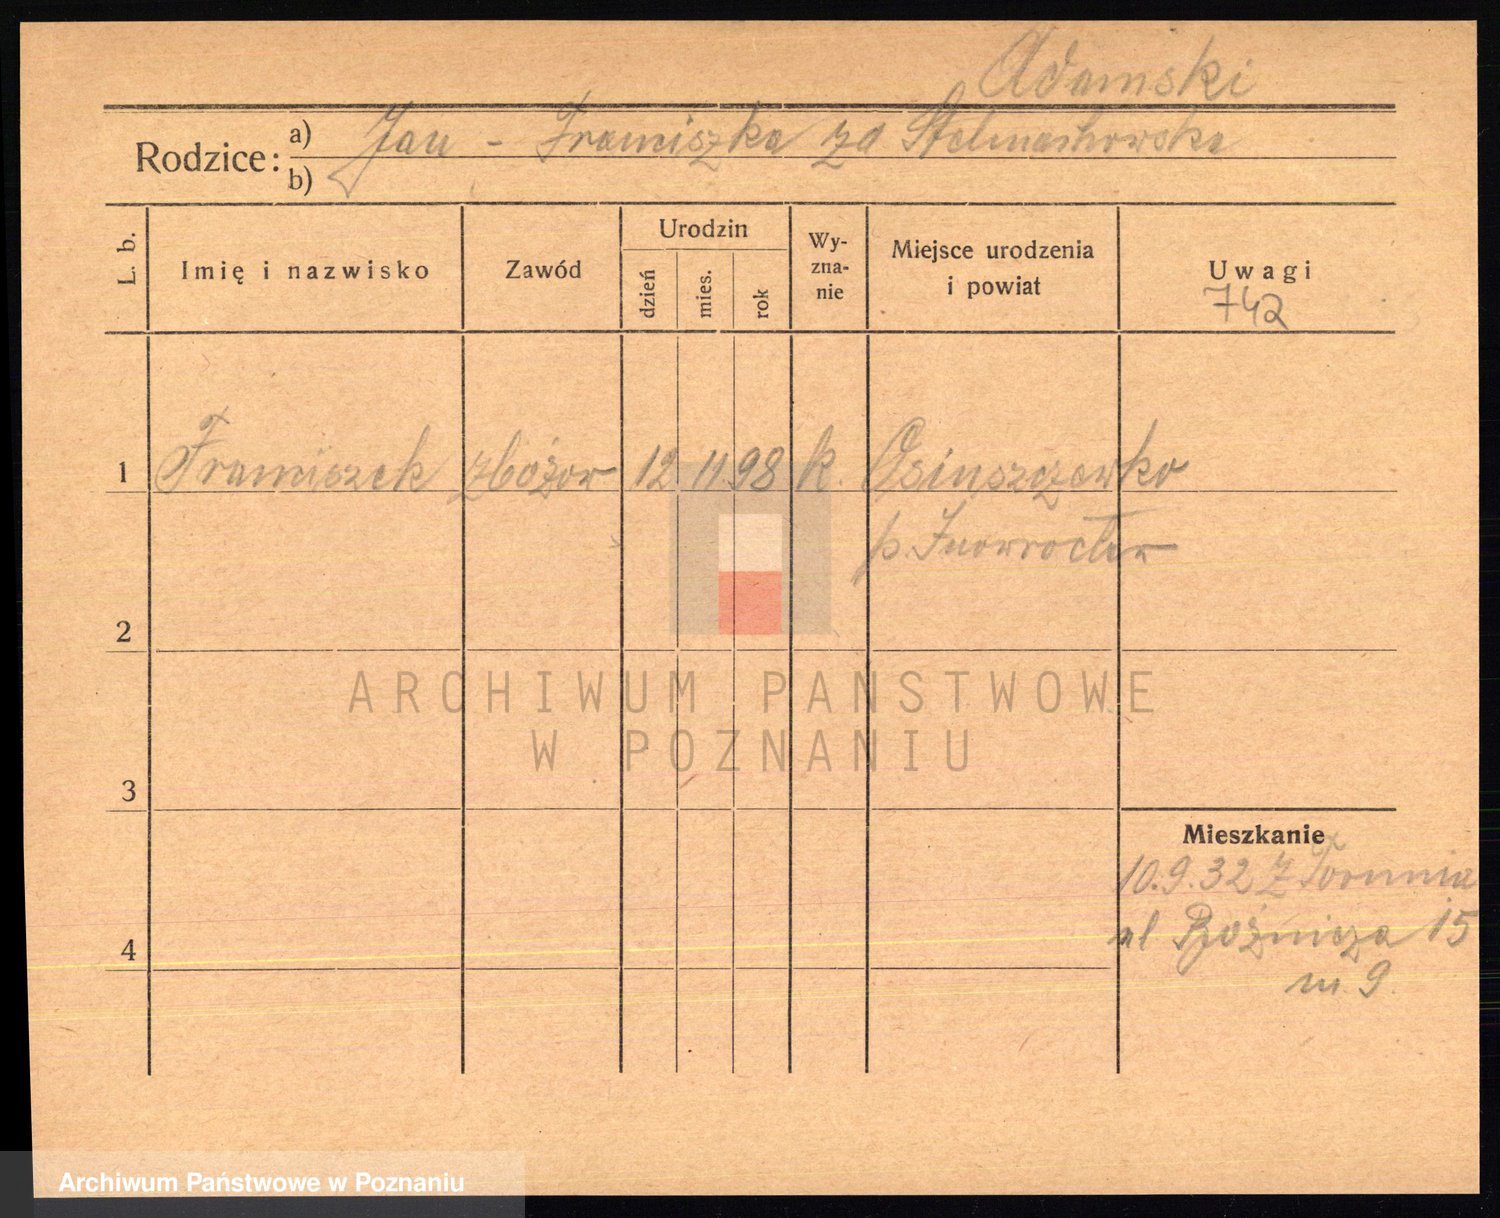 Adamski
Rodzice: a) Jan - Franciszka zd Stelmachowska
b)
L. b.
Imię i nazwisko
Zawód
Urodzin
dzień
mies.
rok
Wy-
zna-
nie
Miejsce urodzenia
i powiat
Uwagi
742
1 Franciszek 12 11 98 k.
p. Inowrocław
2
3
4
Mieszkanie
10.9.32 Z Torunia
ul 15
m. 9.
ARCHIWUM PAŃSTWOWE
W POZNANIU
Archiwum Państwowe w Poznaniu